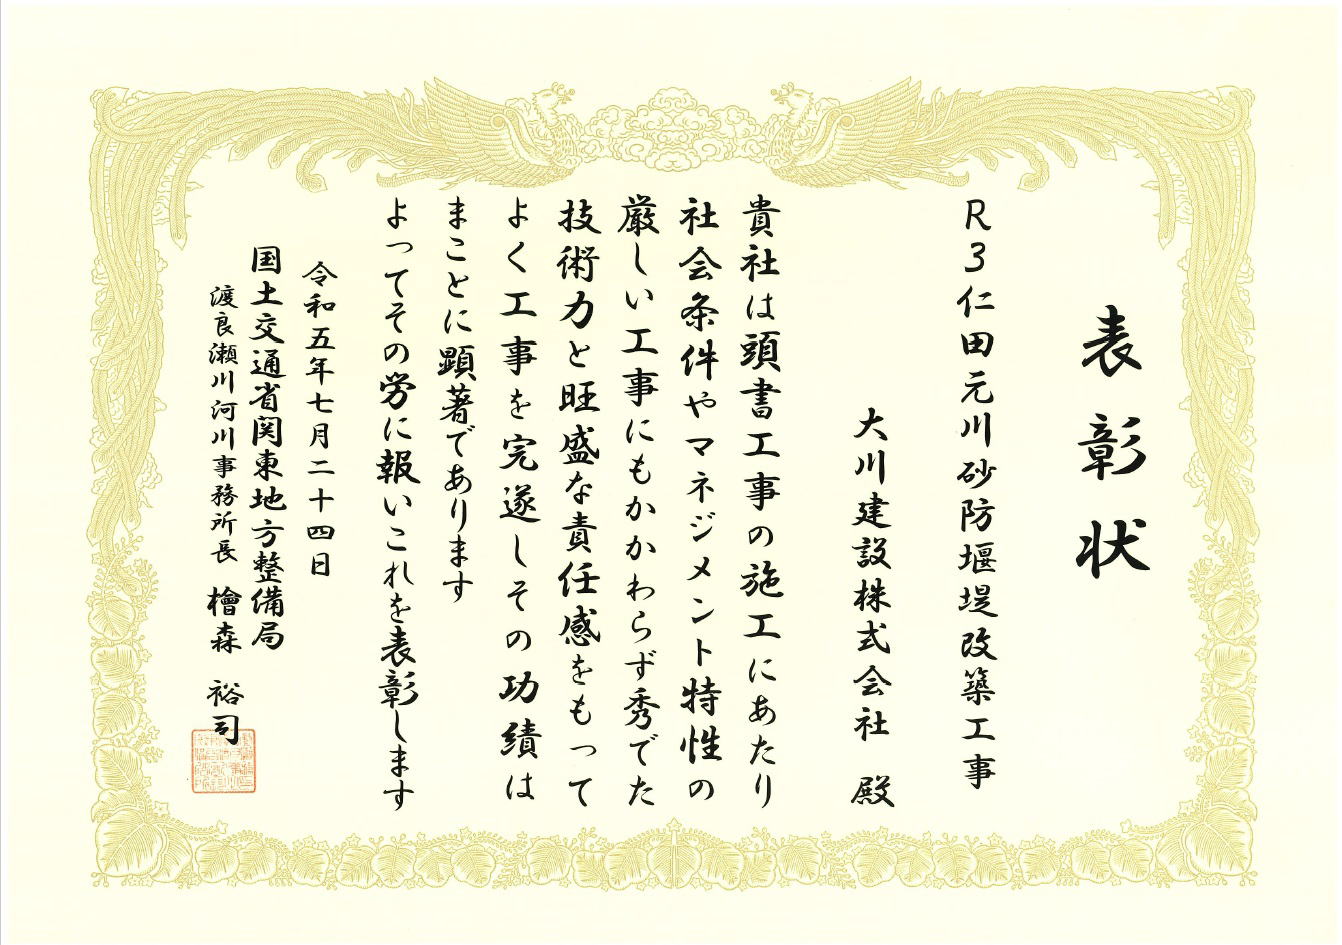 表彰状
R3仁田元川砂防堰堤改築工事
大川建設株式会社 殿
貴社は頭書工事の施工にあたり
社会条件やマネジメント特性の
厳しい工事にもかかわらず秀でた
技術力と旺盛な責任感をもって
よく工事を完遂しその功績は
まことに顕著であります
よってその労に報いこれを表彰します
令和五年七月二十四日
国土交通省関東地方整備局
渡良瀬川河川事務所長 檜森 裕司